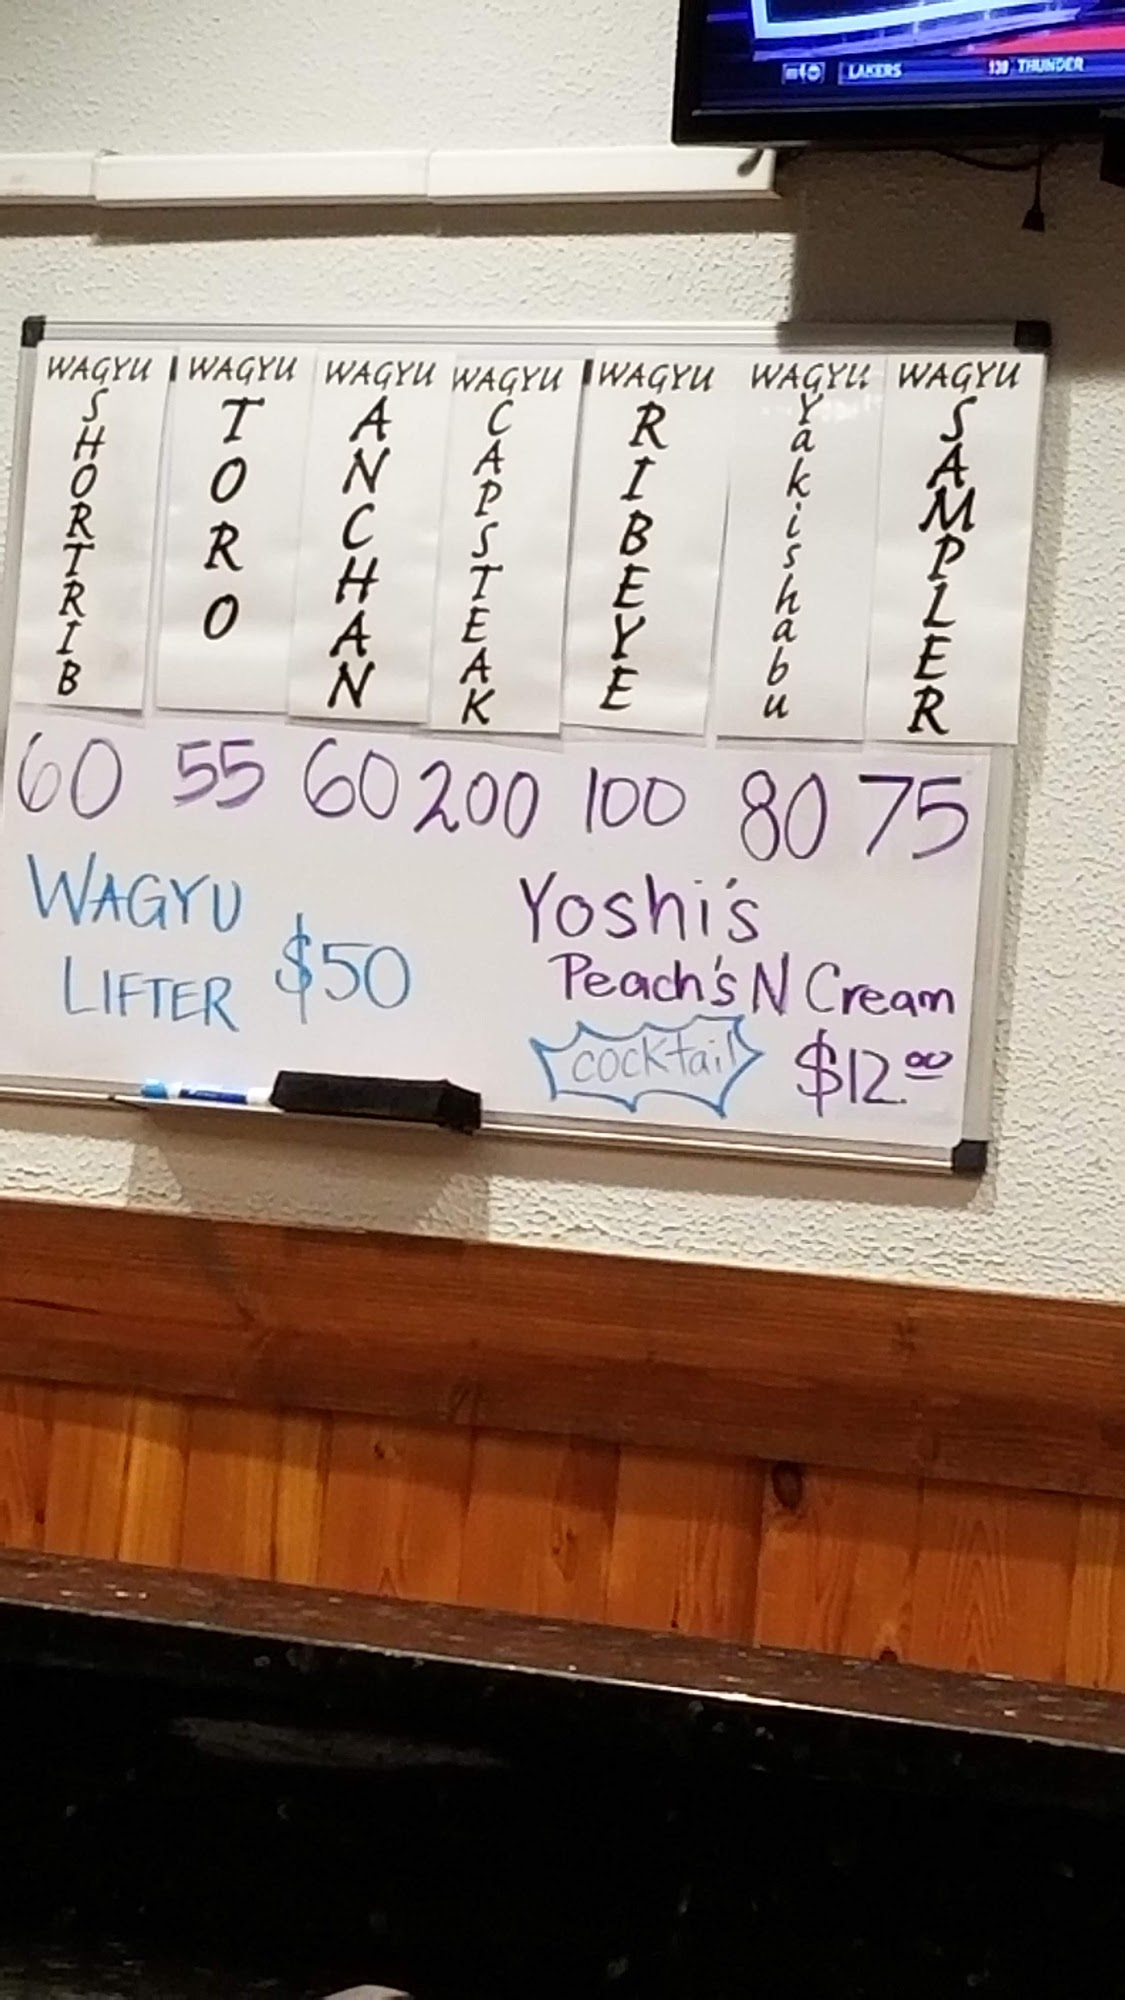 LAKERS 130 THUNDER
WAGYU SHORTRIB
WAGYU TORO
WAGYU ANCHAN
WAGYU CAPSTEAK
WAGYU RIBEYE
WAGYU Yakishabu
WAGYU SAMPLER
60 55 60 200 100 80 75
WAGYU
LIFTER $50
Yoshi's
Peach's N Cream
cocktail $12.00